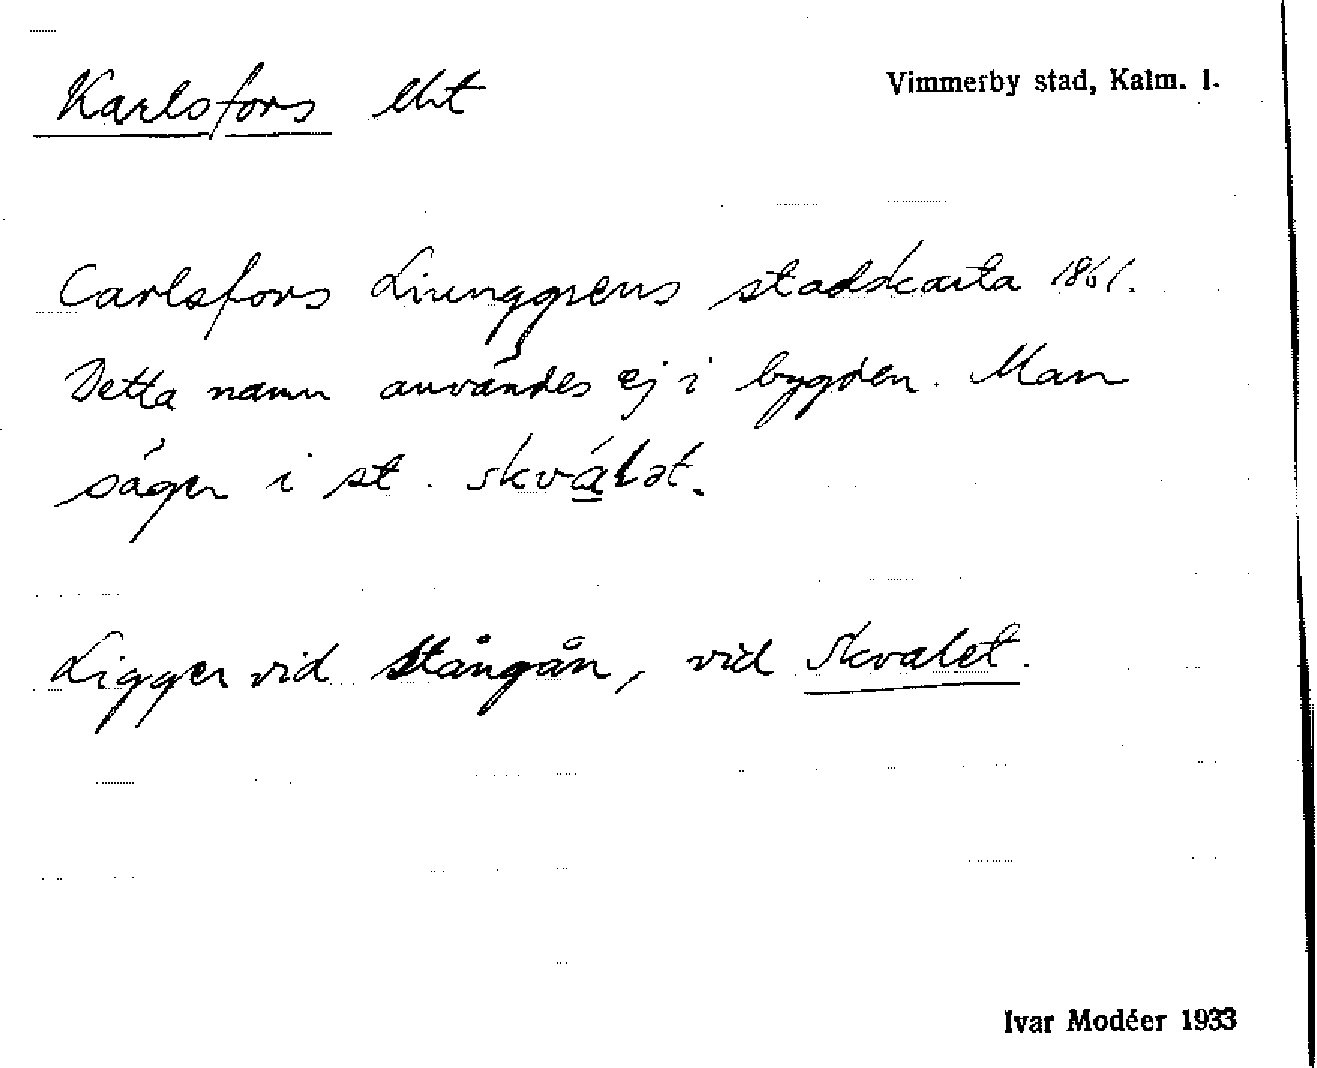 Karlsfors lht
Vimmerby stad, Kalm. l.
Carlsfors Ljunggrens stadskarta 1861.
Detta namn användes ej i bygden. Man
säger i st. skválət.
Ligger vid Stångån, vid Skvalet.
Ivar Modéer 1933